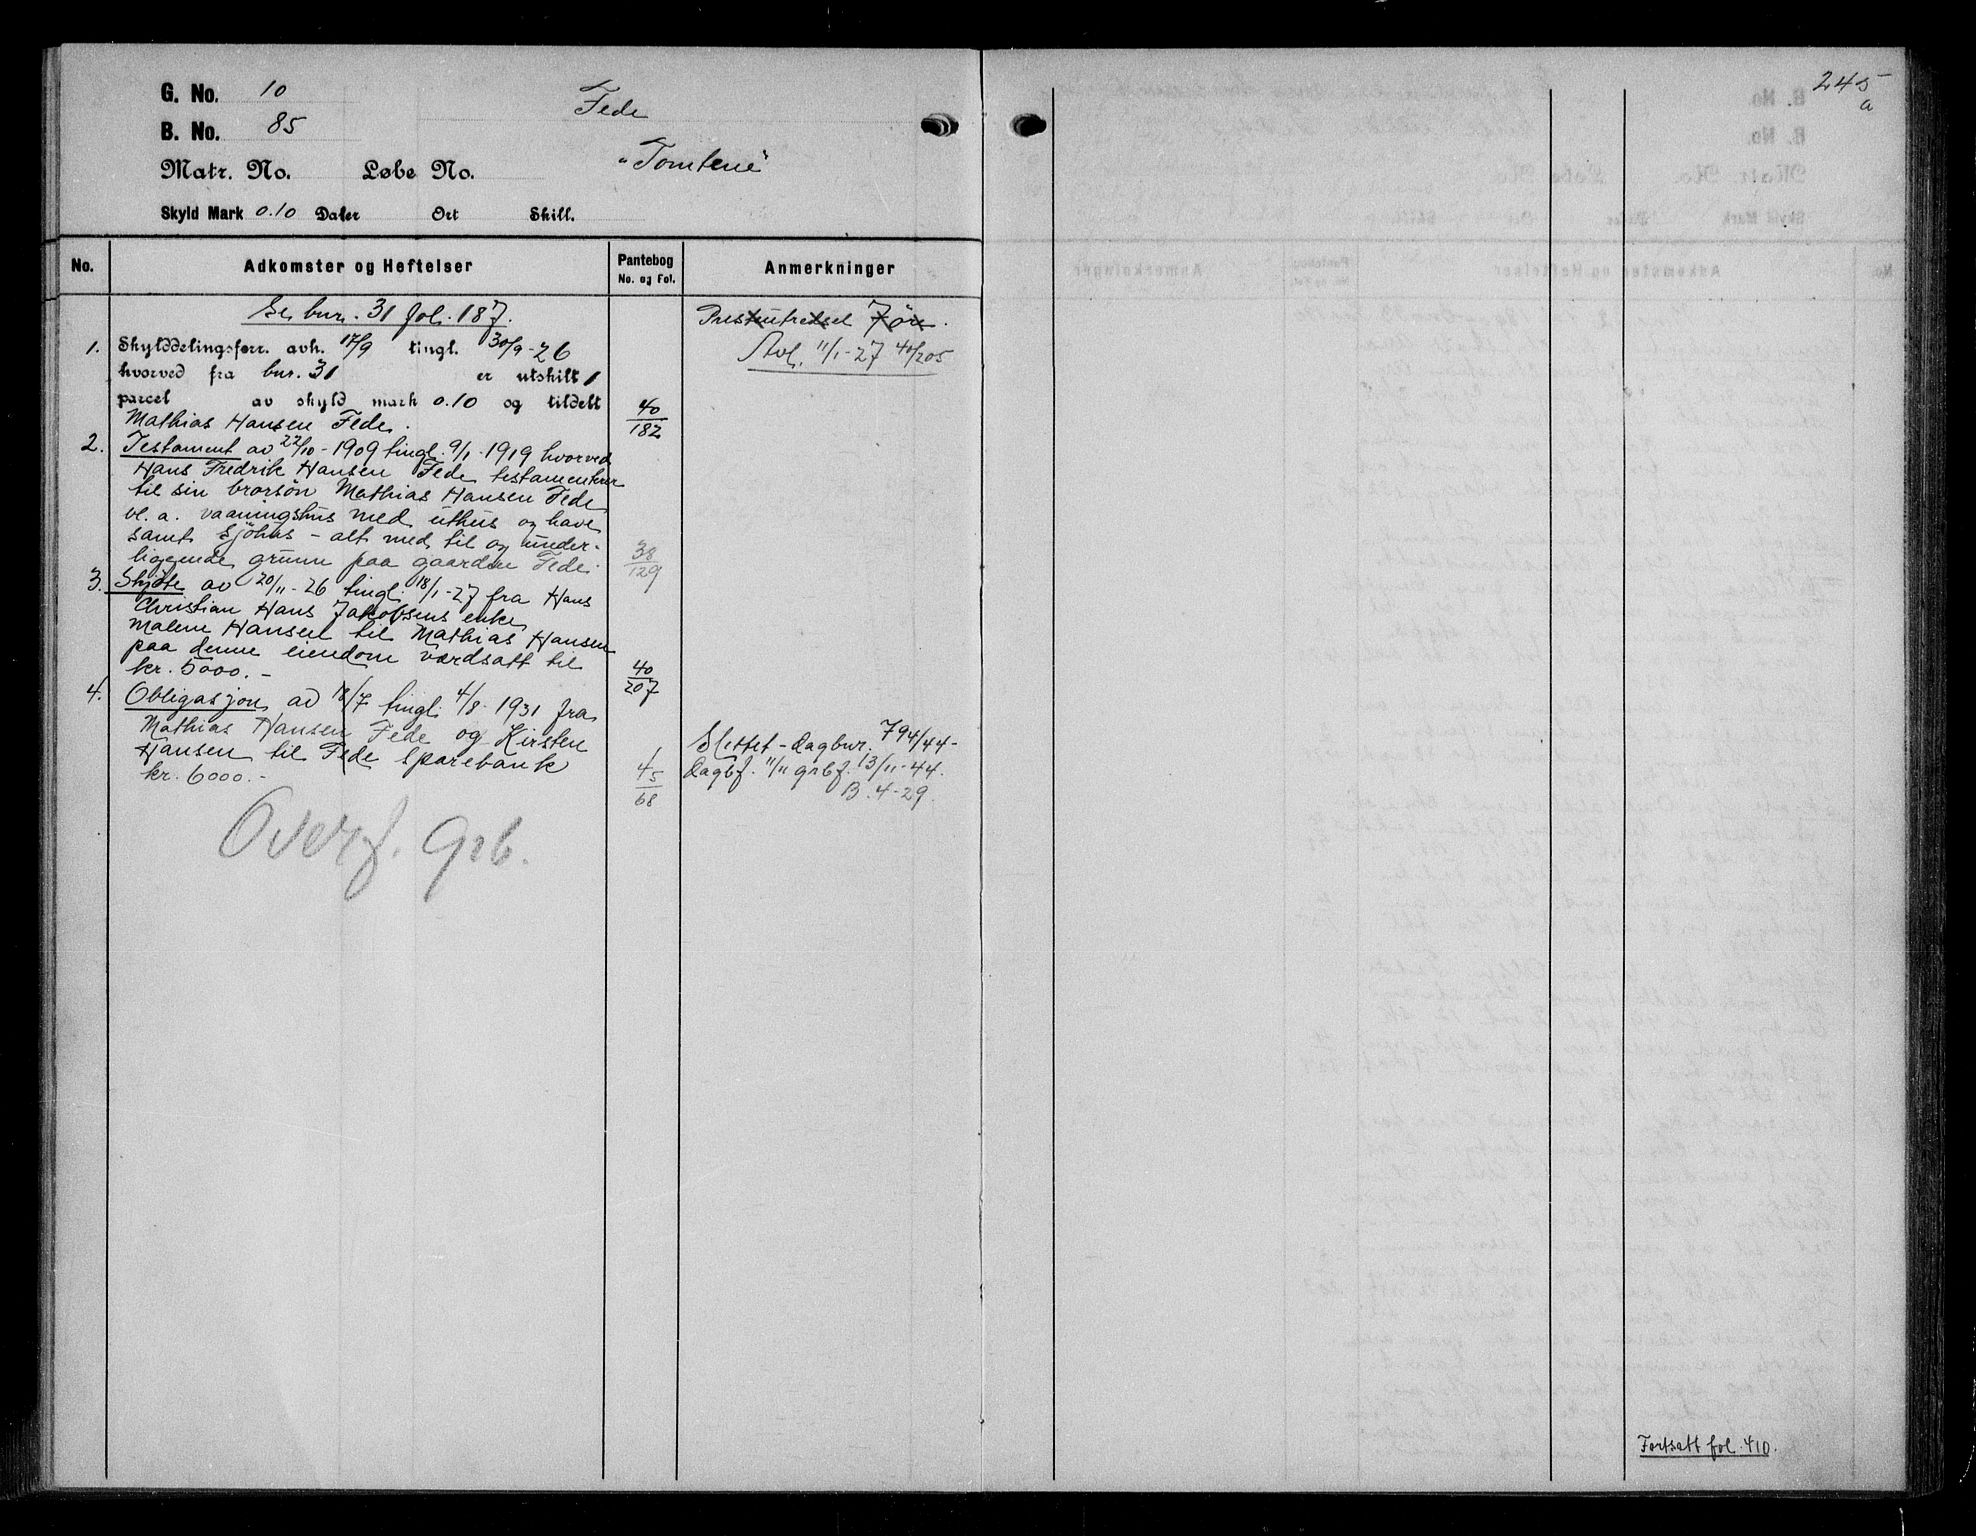 G. No. 10
Fede
B. No. 85
"Tomtene"
Matr. No. Løbe No.
Skyld Mark 0.10 Daler Ort Skill.
No. Adkomster og Heftelser Pantebog No. og Fol. Anmerkninger
Se bnr. 31 fol. 187.
Presteutredsel 7 öre.
Avl. 11/1-27 40/205
1. Skylddelingsforr. avh. 17/9 tingl. 30/9-26
hvorved fra bnr. 31 er utskilt 1
parcel av skyld mark 0.10 og tildelt
Mathias Hansen Fede. 40/182
2. Testament av 22/10-1909 tingl. 9/1-1919 hvorved
Hans Fredrik Hansen Fede testamenterer
til sin brorsön Mathias Hansen Fede
bl. a. vaaningshus med uthus og have
samt Sjöhus - alt med til og under-
liggende grunn paa gaarden Fede. 38/129
3. Skjöte av 20/11-26 tingl. 18/1-27 fra Hans
Christian Hans Jakobsens enke
Malene Hansen til Mathias Hansen
paa denne eiendom værdsatt til
kr. 5000.- 40/207
4. Obligasjon av 18/7 tingl. 4/8-1931 fra
Mathias Hansen Fede og Kirsten
Hansen til Fede Sparebank
kr. 6000.- 45/68
Slettet - dagbnr. 794/44-
dagbf. 11/11 grbf. 13/11-44.
B. 4-29.
Overf. grb.
245
a
Fortsatt fol. 410.